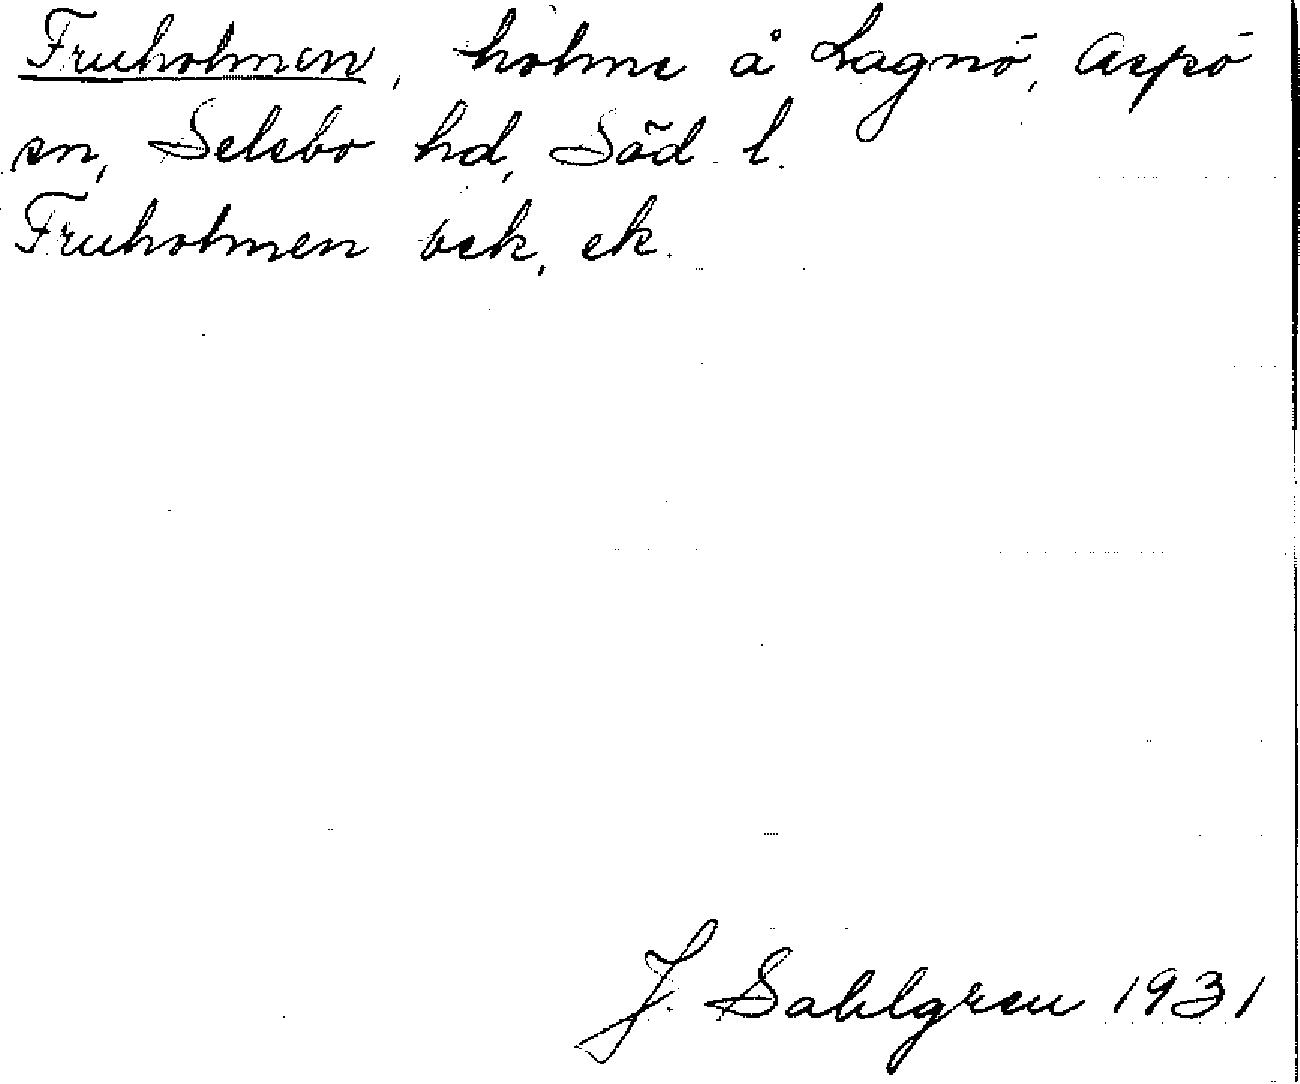 Fruholmen, holme å Lagnö, Aspö
sn, Selebo hd, Söd. l.
Fruholmen eck, ek.
J. Sahlgren 1931